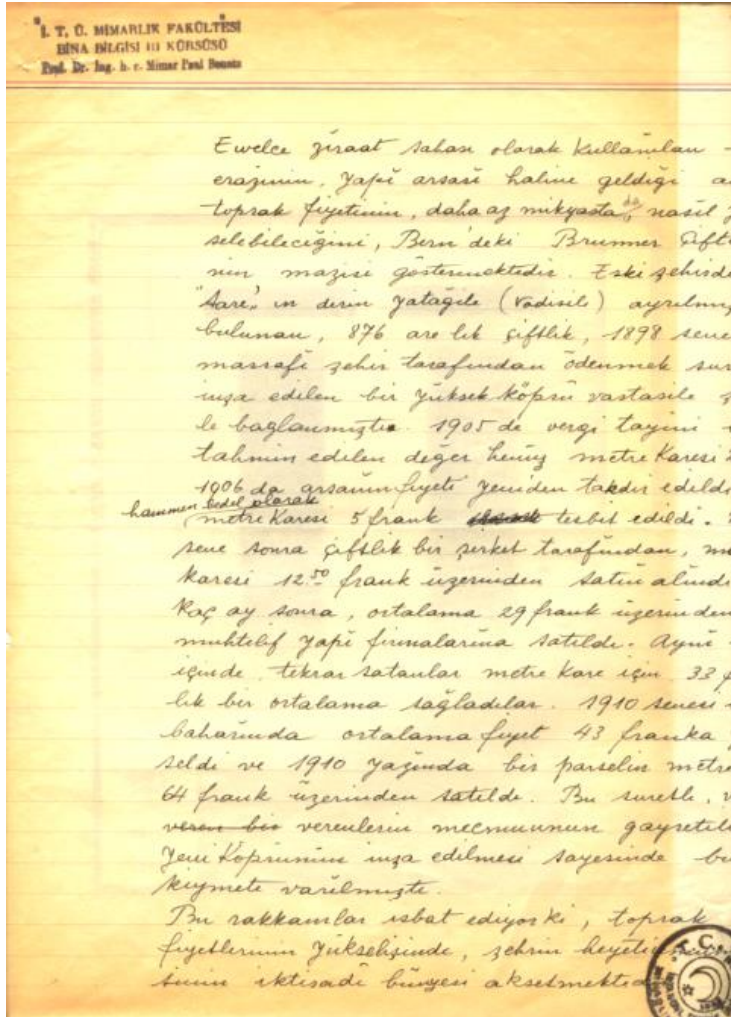 İ. T. Ü. MİMARLIK FAKÜLTESİ
BİNA BİLGİSİ III KÜRSÜSÜ
Prof. Dr. Ing. h. c. Mimar Paul Bonatz
Ewelce ziraat sahası olarak kullanılan
erazinin, yapı arsası haline geldiği
toprak fiyetinin, daha az mikyasta da, nasıl
selebileceğini, Bern'deki Brunner Çift
nin mazisi göstermektedir. Eski şehirde
"Aare" ın derin yatağile (vadisile) ayrılmış
bulunan, 876 are lık çiftlik, 1898 sene
masrafı şehir tarafından ödenmek sur
inşa edilen bir yüksek köprü vastasile ş
le bağlanmıştı. 1905 de vergi tayini
tahmin edilen değer henüz metre karesi
1906 da arsanın fiyeti yeniden takdir edildi
hammen bedel olarak
metre karesi 5 frank tesbit edildi.
sene sonra çiftlik bir şirket tarafından, m
karesi 12.50 frank üzerinden satın alındı
Kaç ay sonra, ortalama 29 frank üzerinden
muhtelif yapı firmalarına satıldı. Ayni
içinde tekrar satanlar metre kare için 33 f
lık bir ortalama sağladılar. 1910 senesi
baharında ortalama fiyet 43 franka
seldi ve 1910 yazında bir parselin metre
64 frank üzerinden satıldı. Bu suretle, v
veren bir verenlerin mecmuunun gayretile
Yeni Köprünün inşa edilmesi sayesinde bu
kıymete varılmıştı.
Bu rakkamlar isbat ediyor ki, toprak
fiyetlerinin yükselişinde, şehrin heyeti
sinin iktisadi bünyesi aksetmekted
T.C.